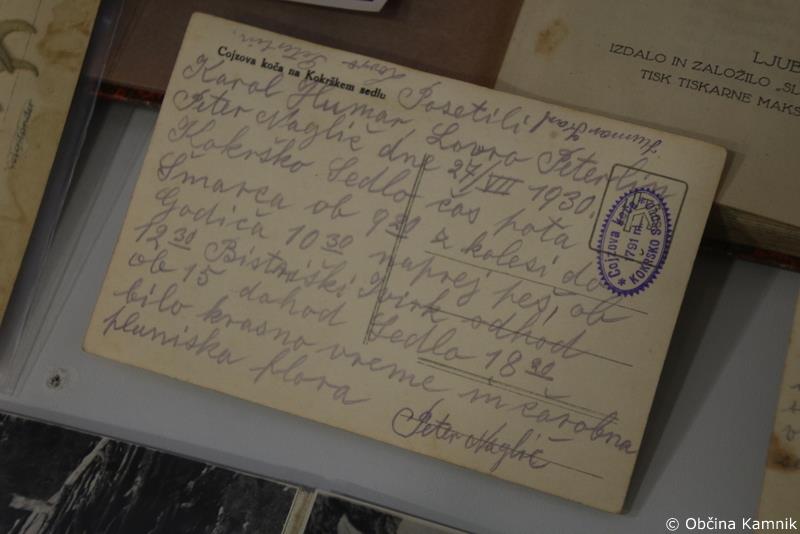 Cojzova koča na Kokrškem sedlu
Lovro Peterlin.
Posetili
Humar Karol
Karol Humar, Lovro Peterlin
Peter Naglič dne 27/VII 1930.
Kokrško Sedlo čas pota
Šmarca ob 9 30 z kolesi do
Godiča 10 30 naprej peš, ob
12 30 Bistriški Izvirk odhod
ob 15 dohod Sedlo 18 30
bilo krasno vreme in čarobna
planiška flora
Peter Naglič
Cojzova koča
1791 m
KOKRSKO SEDLO
LJUB
IZDALO IN ZALOŽILO „SL
TISK TISKARNE MAKS
© Občina Kamnik